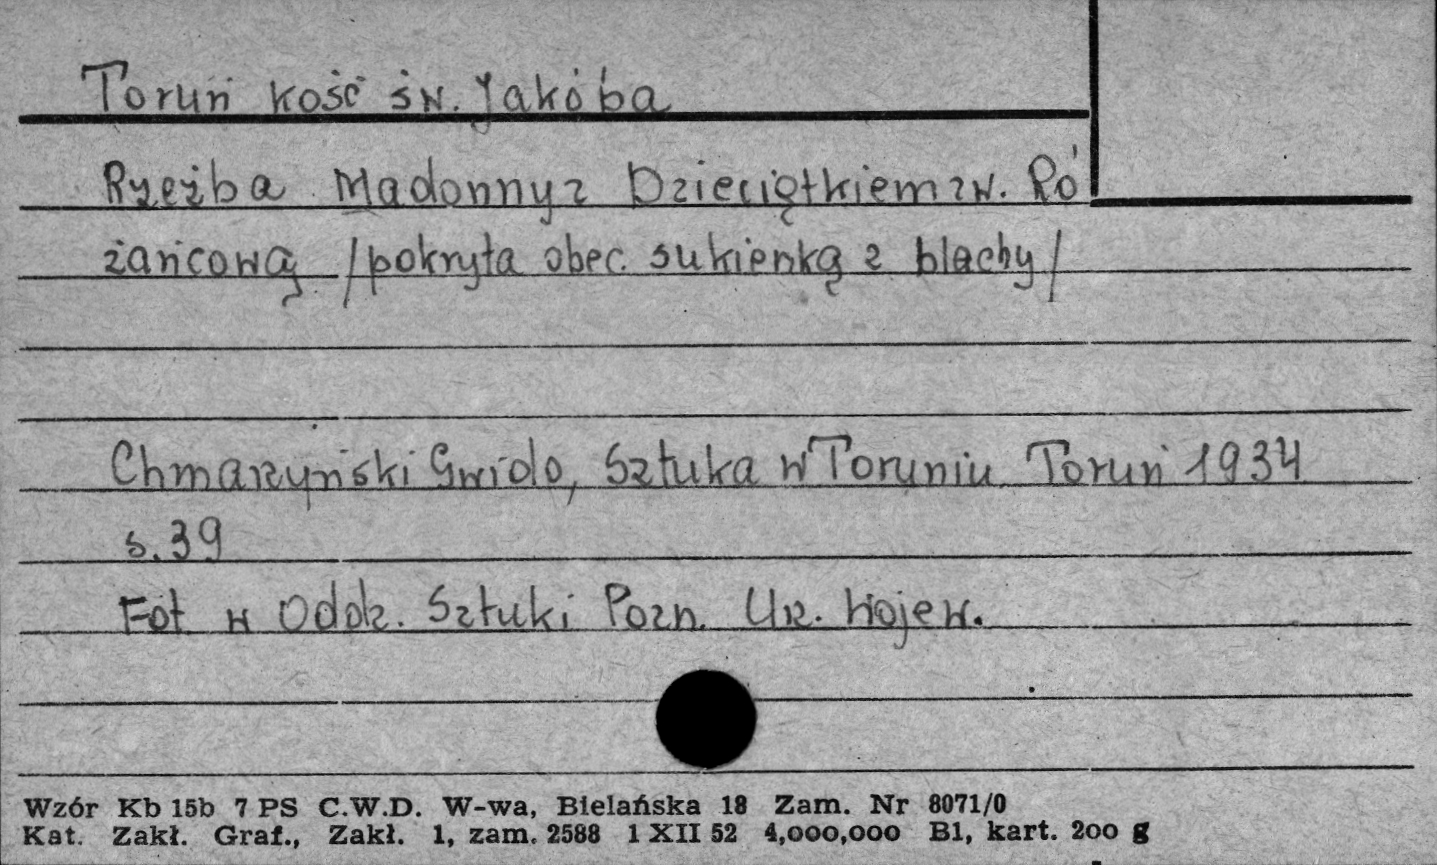 Toruń kość św. Jakóba
Rzeźba Madonny z Dzieciątkiem zw. Ró
żańcową /pokryta obec. sukienką z blachy/
Chmarzyński Gwido, Sztuka w Toruniu Toruń 1934
s. 39
Fot w Oddz. Sztuki Pozn. Urz. Wojew.
Wzór Kb 15b 7 PS C.W.D. W-wa, Bielańska 18 Zam. Nr 8071/0
Kat. Zakł. Graf., Zakł. 1, zam. 2588 1 XII 52 4,000,000 B1, kart. 200 g